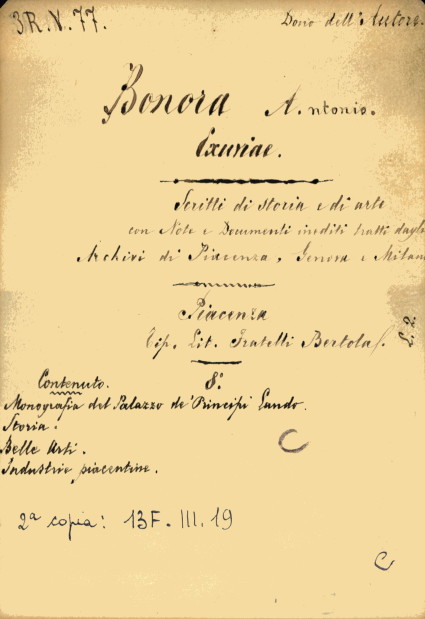 3R.V.77.
Dono dell'Autore.
Bonora Antonio.
Exuviae.
Scritti di storia e di arte
con Note e Documenti inediti tratti dagli
Archivi di Piacenza, Genova e Milano
Piacenza
Tip. Lit. Fratelli Bertola
L. 2.
8.°
Contenuto.
Monografia del Palazzo de' Principi Landо.
Storia.
Belle Arti.
Industrie piacentine.
2ª copia: 13F. III. 19
C
C